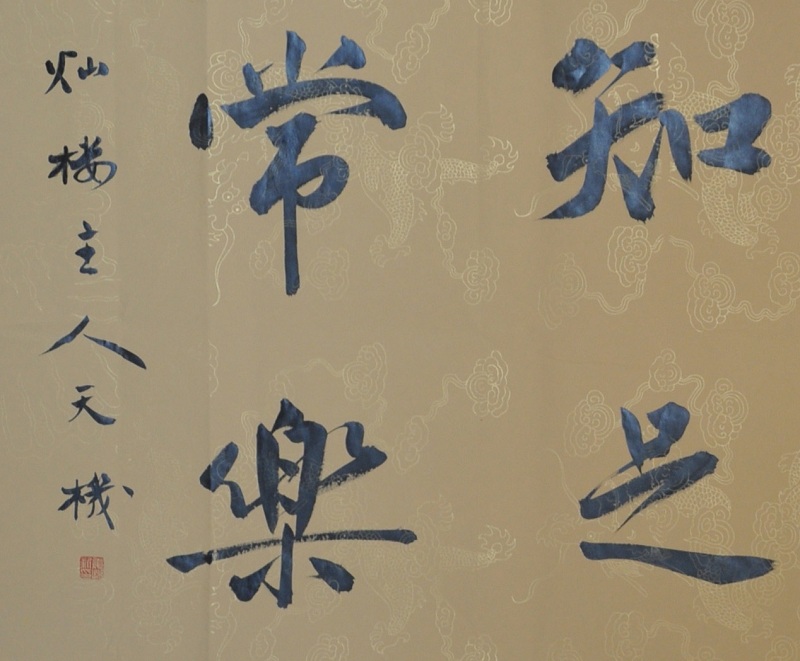 知足
常樂
灿楼主人天機